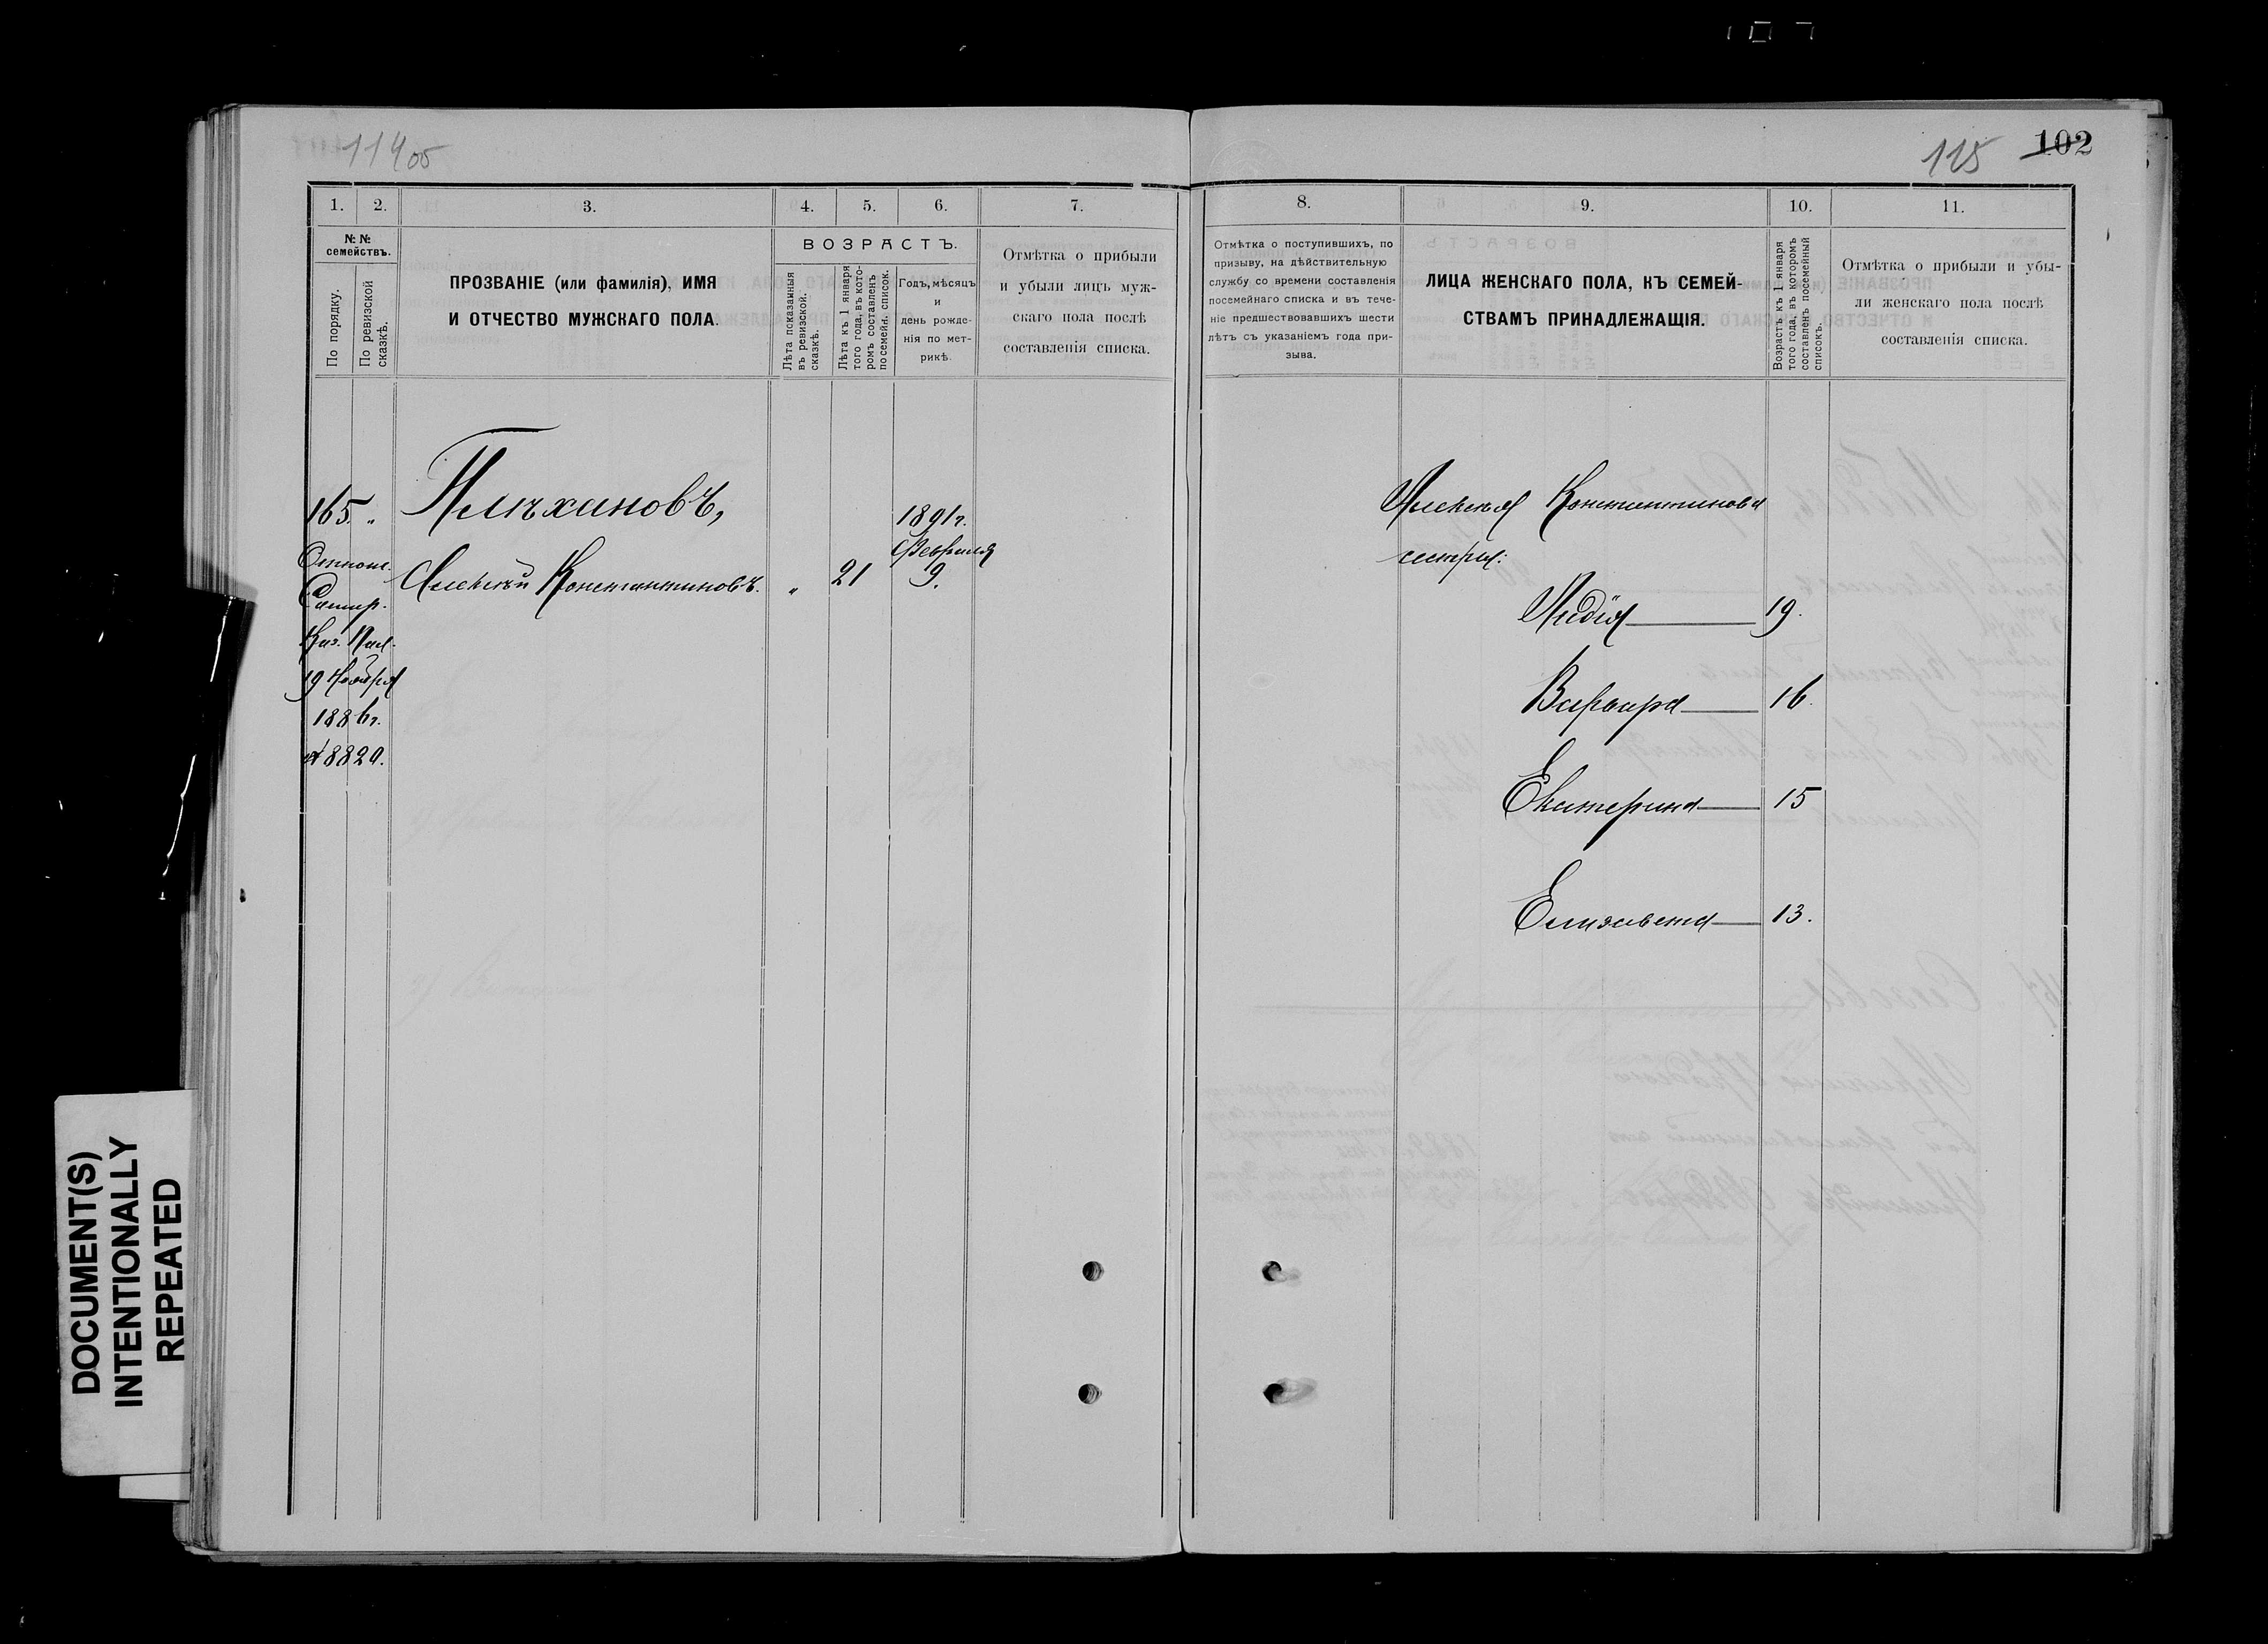 114 05
115 102
1. 2. 3. 4. 5. 6. 7.
№ № семействъ.
По порядку.
По ревизской сказкѣ.
ПРОЗВАНІЕ (или фамилія), ИМЯ
И ОТЧЕСТВО МУЖСКАГО ПОЛА.
ВОЗРАСТЪ.
Лѣта показанныя въ ревизской. сказкѣ.
Лѣта къ 1 января того года, въ кото-ромъ составленъ посемейн. список.
Годъ, мѣсяцъ
и
день рожде-
нія по мет-
рикѣ.
Отмѣтка о прибыли
и убыли лицъ муж-
скаго пола послѣ
составленія списка.
165. "
1891г.
Февраля
Алексѣй Константиновъ. " 21 9.
Самар.
Каз. Пал.
19 Ноября
1886г.
№ 8829.
8. 9. 10. 11.
Отмѣтка о поступившихъ, по
призыву, на дѣйствительную
службу со времени составленія
посемейнаго списка и въ тече-
ніе предшествовавшихъ шести
лѣтъ съ указаніемъ года при-
зыва.
ЛИЦА ЖЕНСКАГО ПОЛА, КЪ СЕМЕЙ-
СТВАМЪ ПРИНАДЛЕЖАЩІЯ.
Возрастъ къ 1 января
того года, въ которомъ
составленъ посемейный
списокъ.
Отмѣтка о прибыли и убы-
ли женскаго пола послѣ
составленія списка.
Алексѣя Константинова
сестры:
Лидія 19.
Варвара 16.
Екатерина 15
Елизавета 13.
DOCUMENT(S)
INTENTIONALLY
REPEATED